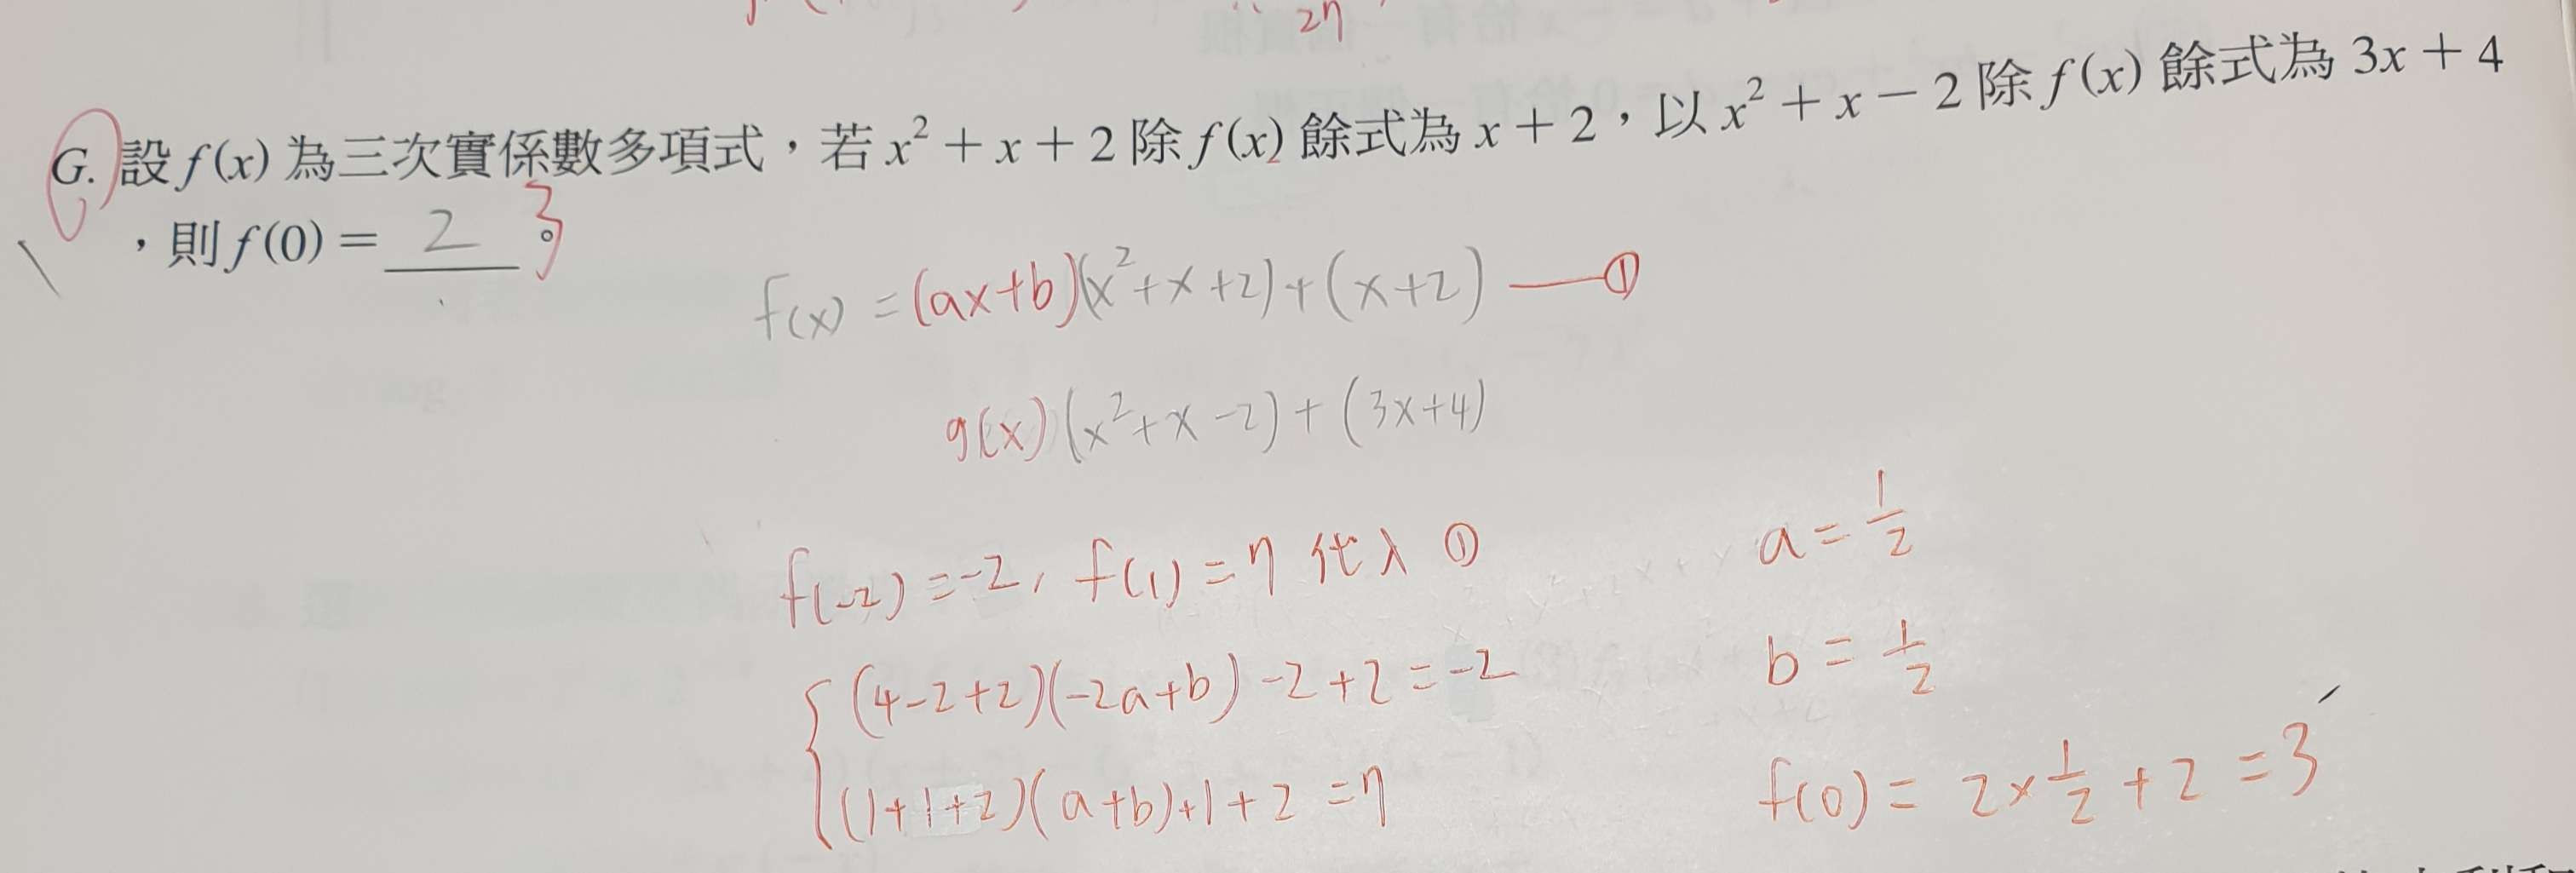 27
G. 設 f(x) 為三次實係數多項式，若 x² + x + 2 除 f(x) 餘式為 x + 2，以 x² + x − 2 除 f(x) 餘式為 3x + 4
，則 f(0) = 2 。 3
f(x) = (ax+b)(x²+x+2)+(x+2) —①
g(x)(x²+x-2)+(3x+4)
f(-2)=-2, f(1)=7 代入 ①
a = 1/2
(4-2+2)(-2a+b)-2+2=-2
b = 1/2
(1+1+2)(a+b)+1+2=7
f(0) = 2×1/2+2 = 3